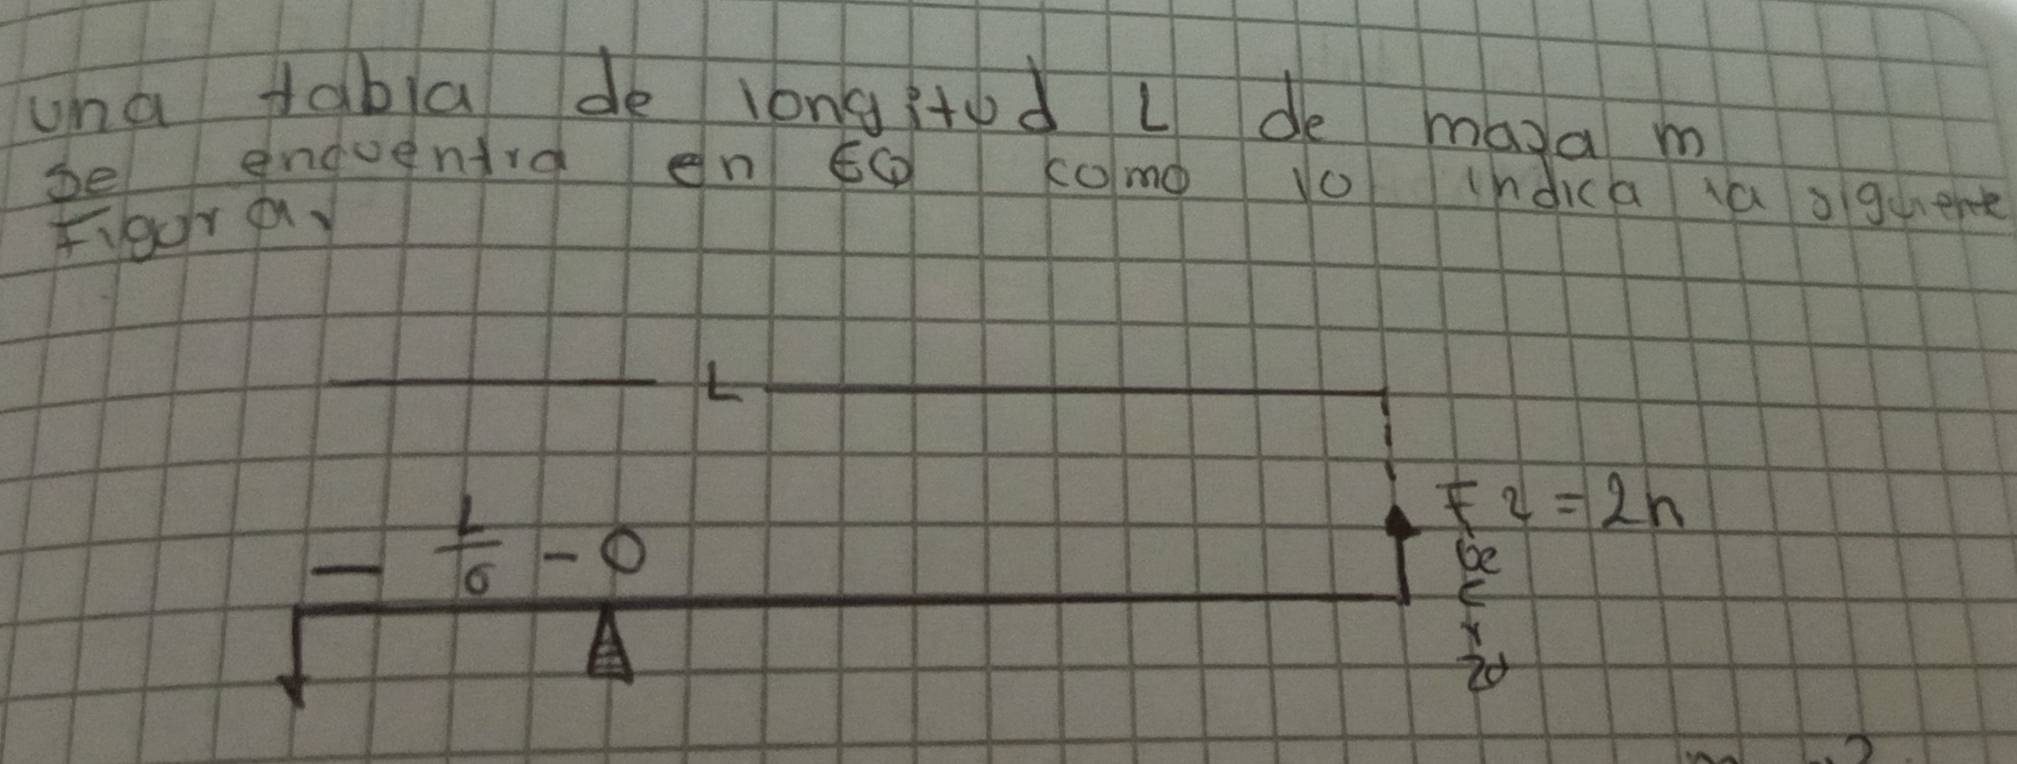 una tabla de longitud L de masa m
se encuentra en EQ como lo indica la siguiente
Figura,
L
L/6 - O
F2 = 2n